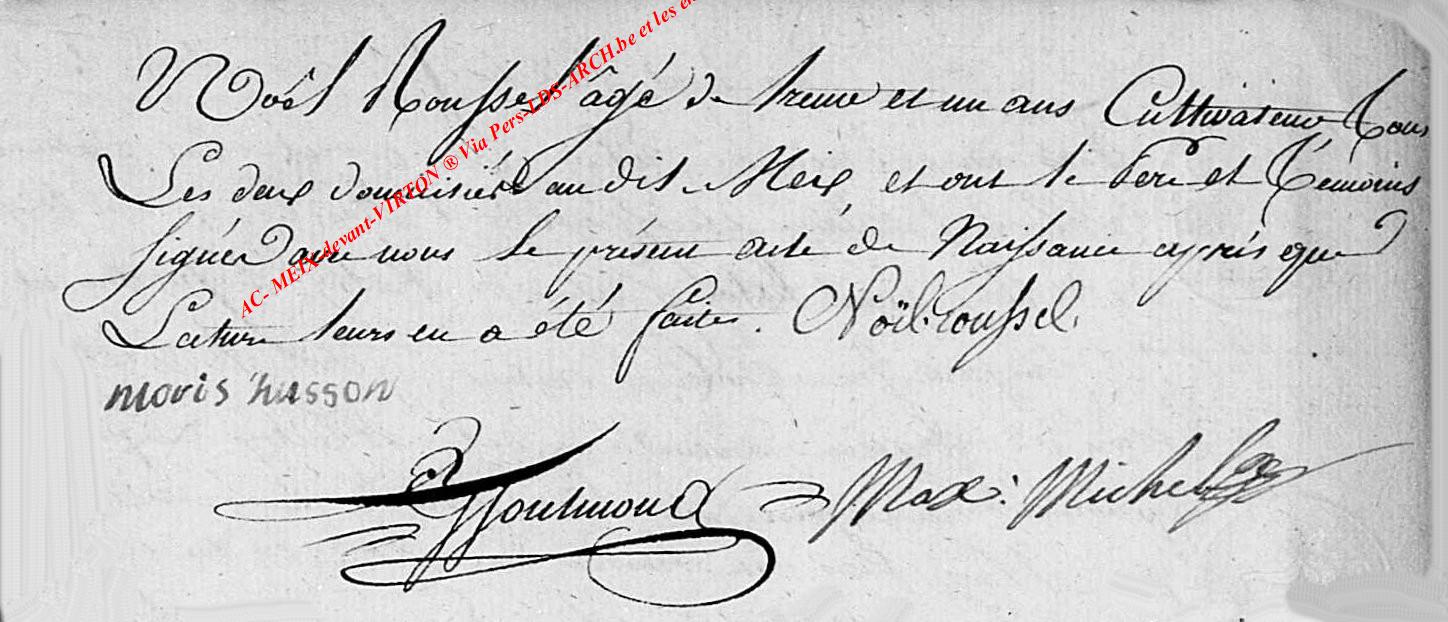 Noël Rousselle âgé de trente et un ans Cultivateur Tous
Les deux domiciliés au dit Meix, et ont le Pere et Témoins
signés avec nous le présent acte de Naissance après que
Lecture leurs en a été faites. Noël roussel.
moris husson
Max: Michel
AC- MEIX-devant-VIRTON ® Via Pers-LDS-ARCH.be et les en